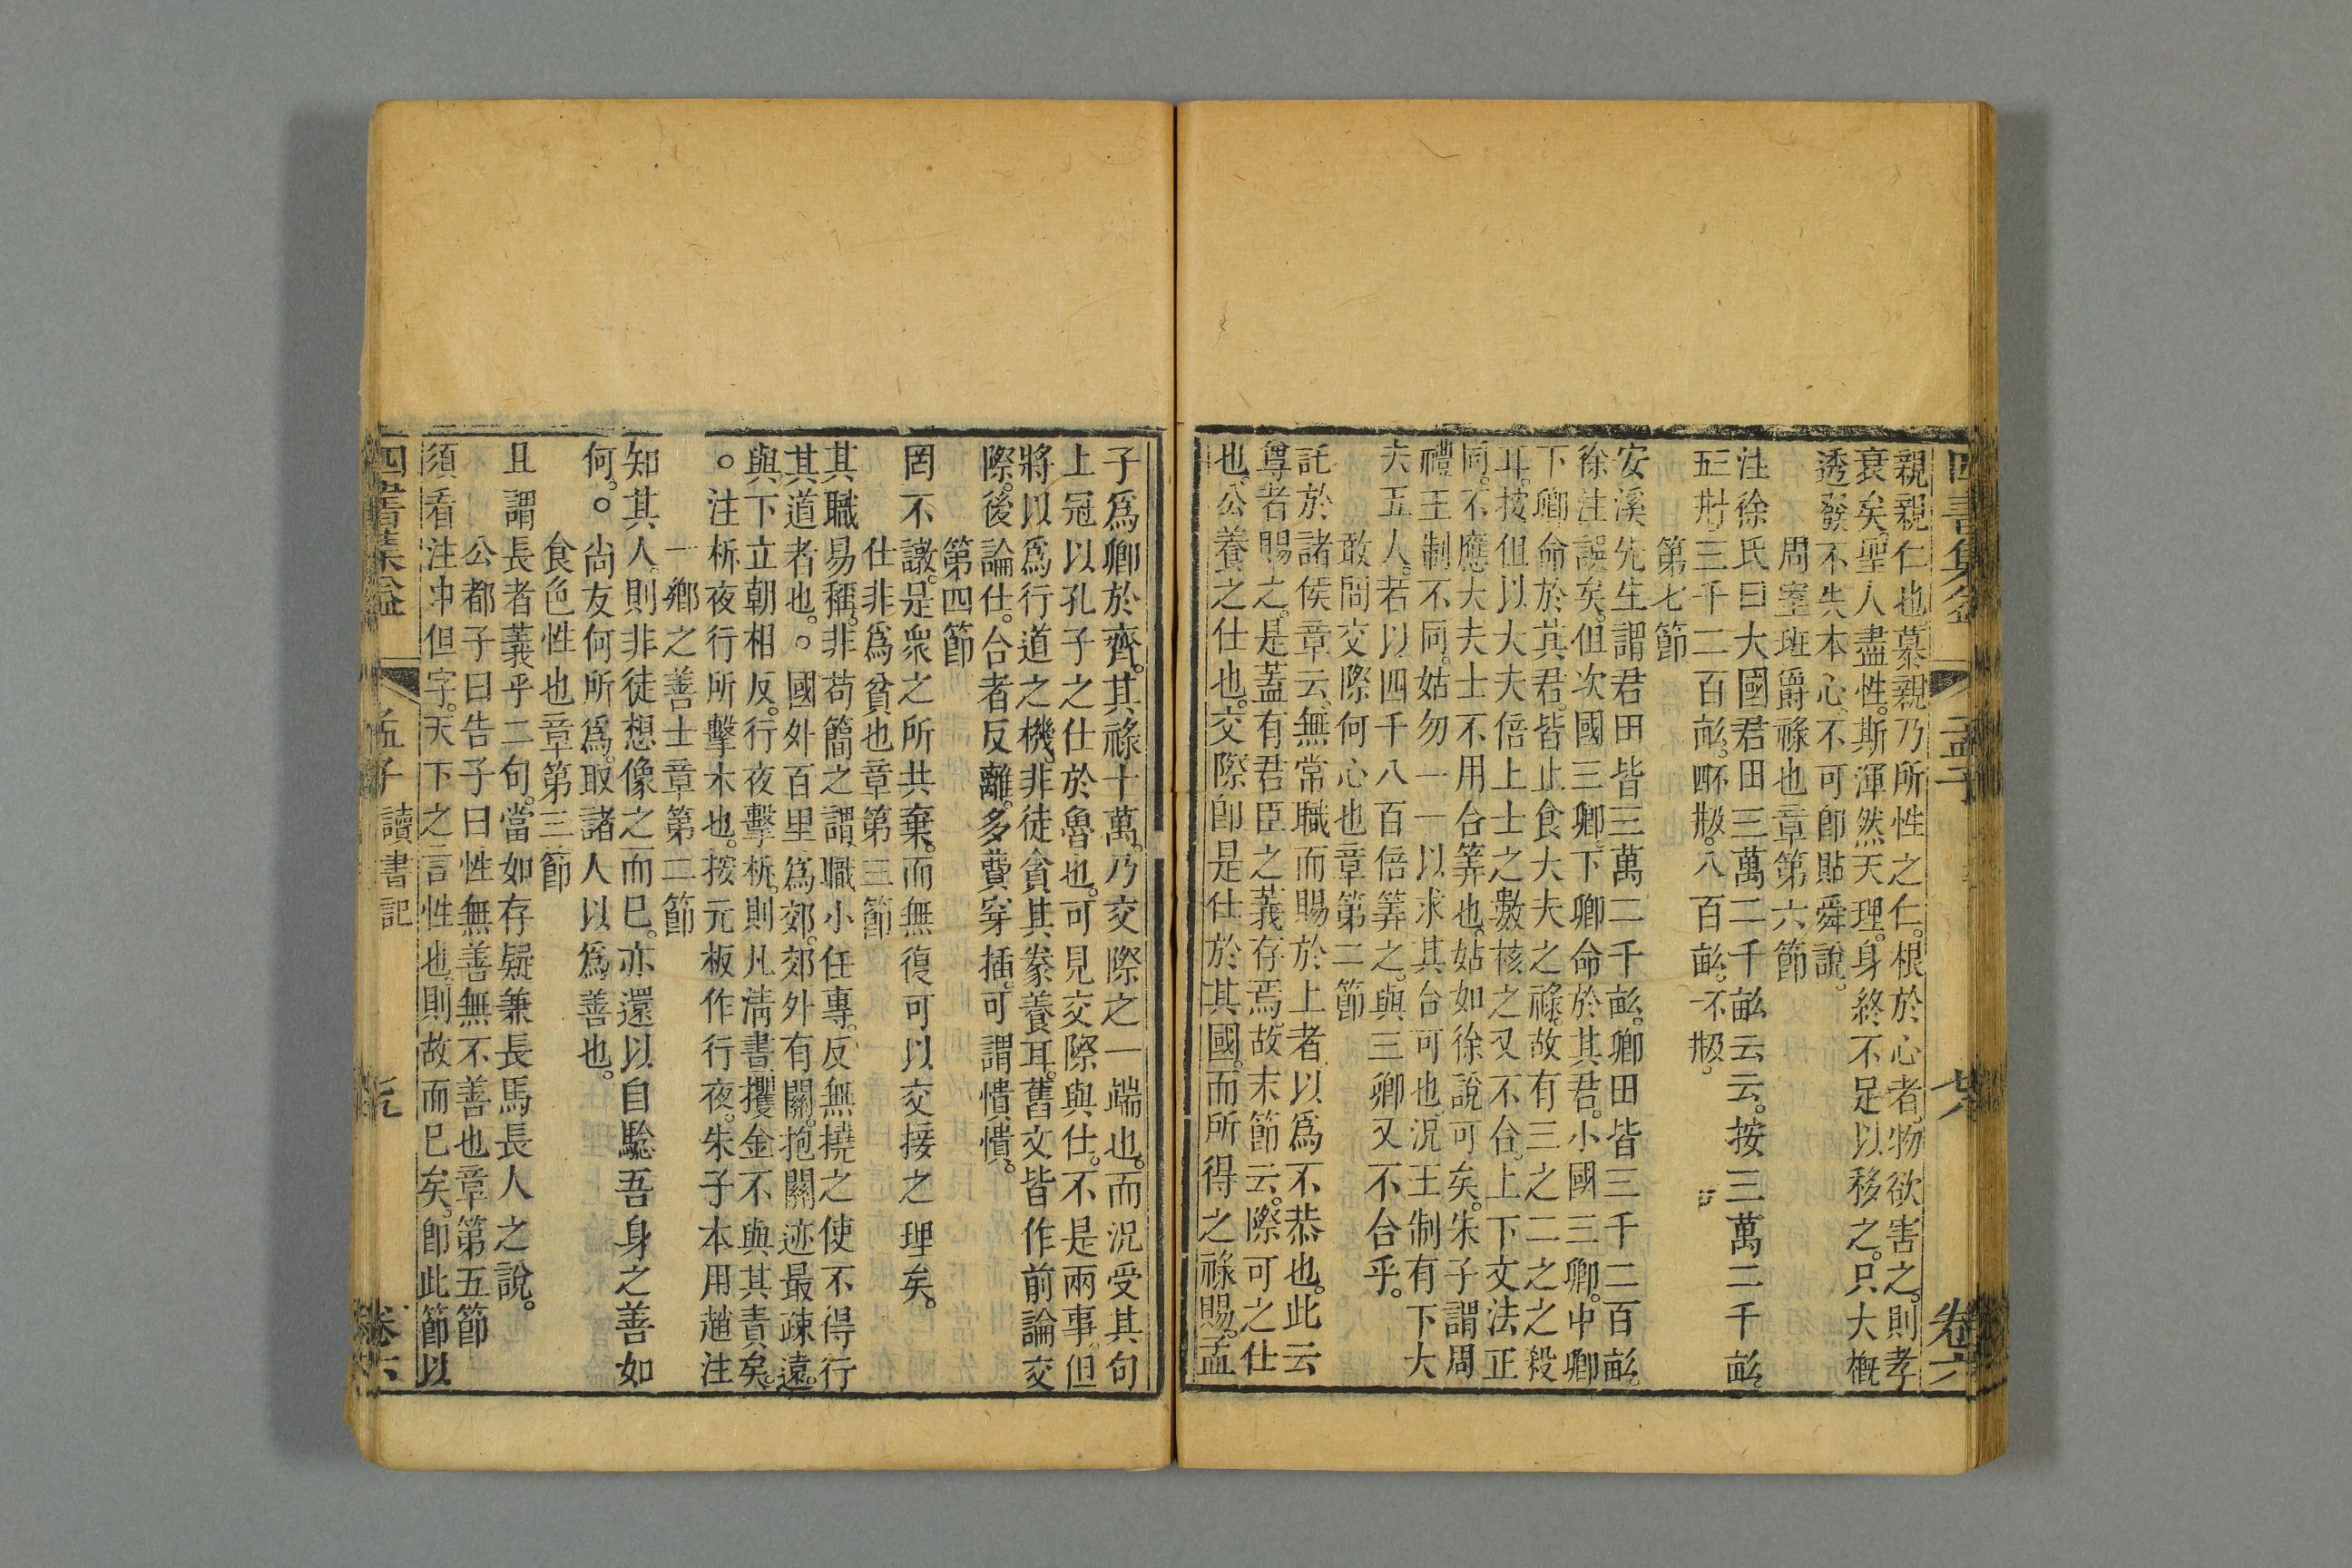 四書集益 孟子 卷六
親親仁也慕親乃所性之仁根於心者物欲害之則孝
衰矣聖人盡性斯渾然天理身終不足以移之只大概
透發不失本心不可卽貼舜說
周室班爵祿也章第六節
注徐氏曰大國君田三萬二千畝云云按三萬二千畝
三千二百畝 八百畝
第七節
安溪先生謂君田皆三萬二千畝卿田皆三千二百畝
徐注誤矣但次國三卿下卿命於其君小國三卿中卿
下卿命於其君皆止食大夫之祿故有三之二之之殺
耳按但以大夫倍上士之數核之又不合上下文法正
同不應大夫士不用合筭也姑如徐說可矣朱子謂周
禮王制不同姑勿一一以求其合可也況王制有下大
夫五人若以四千八百倍筭之與三卿又不合乎
敢問交際何心也章第二節
託於諸侯章云無常職而賜於上者以爲不恭也此云
尊者賜之是蓋有君臣之義存焉故末節云際可之仕
也公養之仕也交際卽是仕於其國而所得之祿賜孟
子爲卿於齊其祿十萬乃交際之一端也而況受其句
上冠以孔子之仕於魯也可見交際與仕不是兩事但
將以爲行道之機非徒貪其豢養耳舊文皆作前論交
際後論仕合者反離多費穿插可謂憒憒
第四節
罔不譈是衆之所共棄而無復可以交接之理矣
仕非爲貧也章第三節
其職易稱非苟簡之謂職小任專反無撓之使不得行
其道者也○國外百里爲郊郊外有關抱關迹最疎遠
與下立朝相反行夜擊柝則凡淸書攫金不與其責矣
○注柝夜行所擊木也按元板作行夜朱子本用趙注
一鄉之善士章第二節
知其人則非徒想像之而已亦還以自騐吾身之善如
何○尚友何所爲取諸人以爲善也
食色性也章第三節
且謂長者義乎二句當如存疑兼長馬長人之說
公都子曰告子曰性無善無不善也章第五節
須看注中但字天下之言性也則故而已矣卽此節以
四書集益 孟子 讀書記 卷六